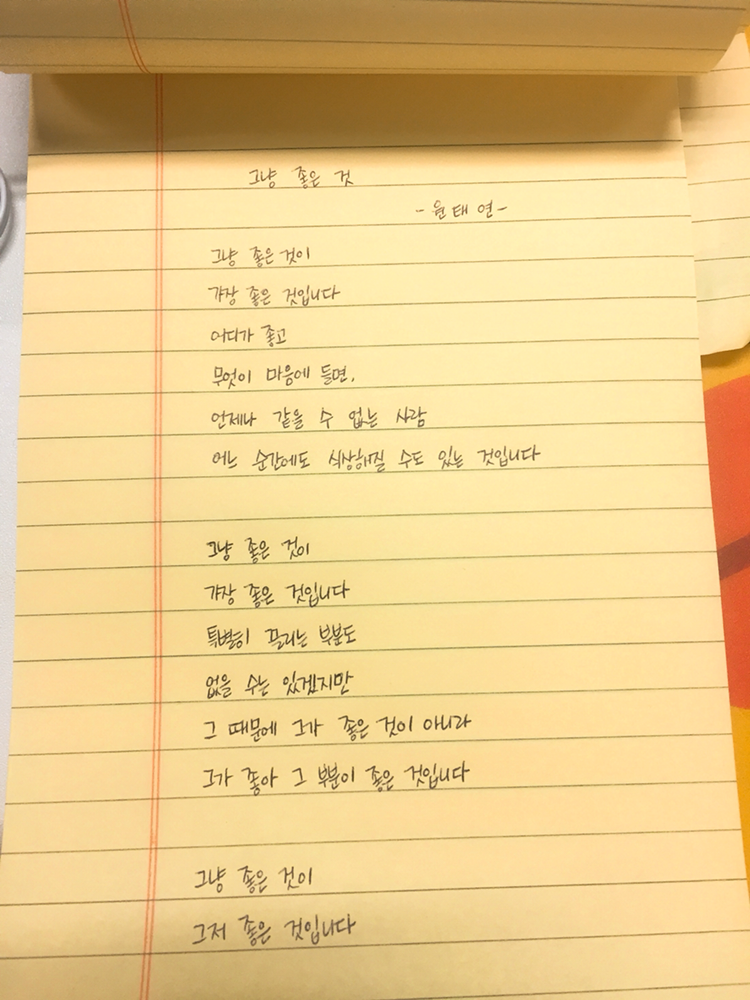 그냥 좋은 것
-원태연-
그냥 좋은 것이
가장 좋은 것입니다
어디가 좋고
무엇이 마음에 들면,
언제나 같을 수 없는 사람
어느 순간에도 식상해질 수도 있는 것입니다
그냥 좋은 것이
가장 좋은 것입니다
특별히 끌리는 부분도
없을 수는 있겠지만
그 때문에 그가 좋은 것이 아니라
그가 좋아 그 부분이 좋은 것입니다
그냥 좋은 것이
그저 좋은 것입니다